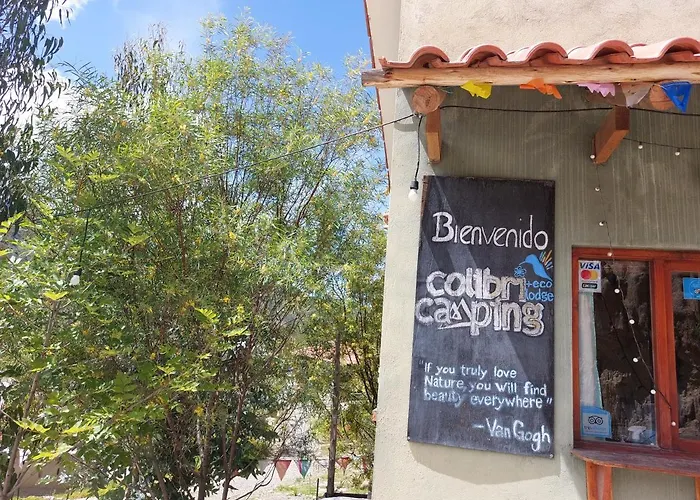 Bienvenido
colibri
+eco
lodge
camping
"If you truly love
Nature, you will find
beauty everywhere"
—Van Gogh
VISA